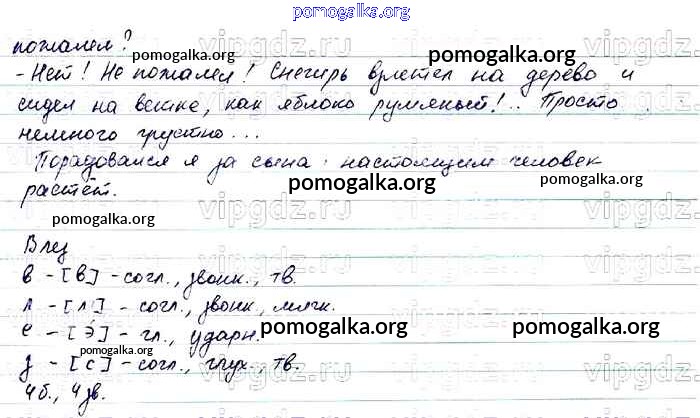 pomogalka.org
пожалел?
- Нет! Не пожалел! Снегирь взлетел на дерево и
сидел на ветке, как яблоко румяный!.. Просто
немного грустно...
Порадовался я за сына: настоящим человек
растёт.
Влез
в - [в] - согл., звонк., тв.
л - [л,] - согл., звонк., мягк.
е - [э́] - гл., ударн.
з - [с] - согл., глух., тв.
4 б., 4 зв.
pomogalka.org
pomogalka.org
pomogalka.org
pomogalka.org
pomogalka.org
pomogalka.org
pomogalka.org
pomogalka.org
pomogalka.org
pomogalka.org
vipgdz.ru
vipgdz.ru
vipgdz.ru
vipgdz.ru